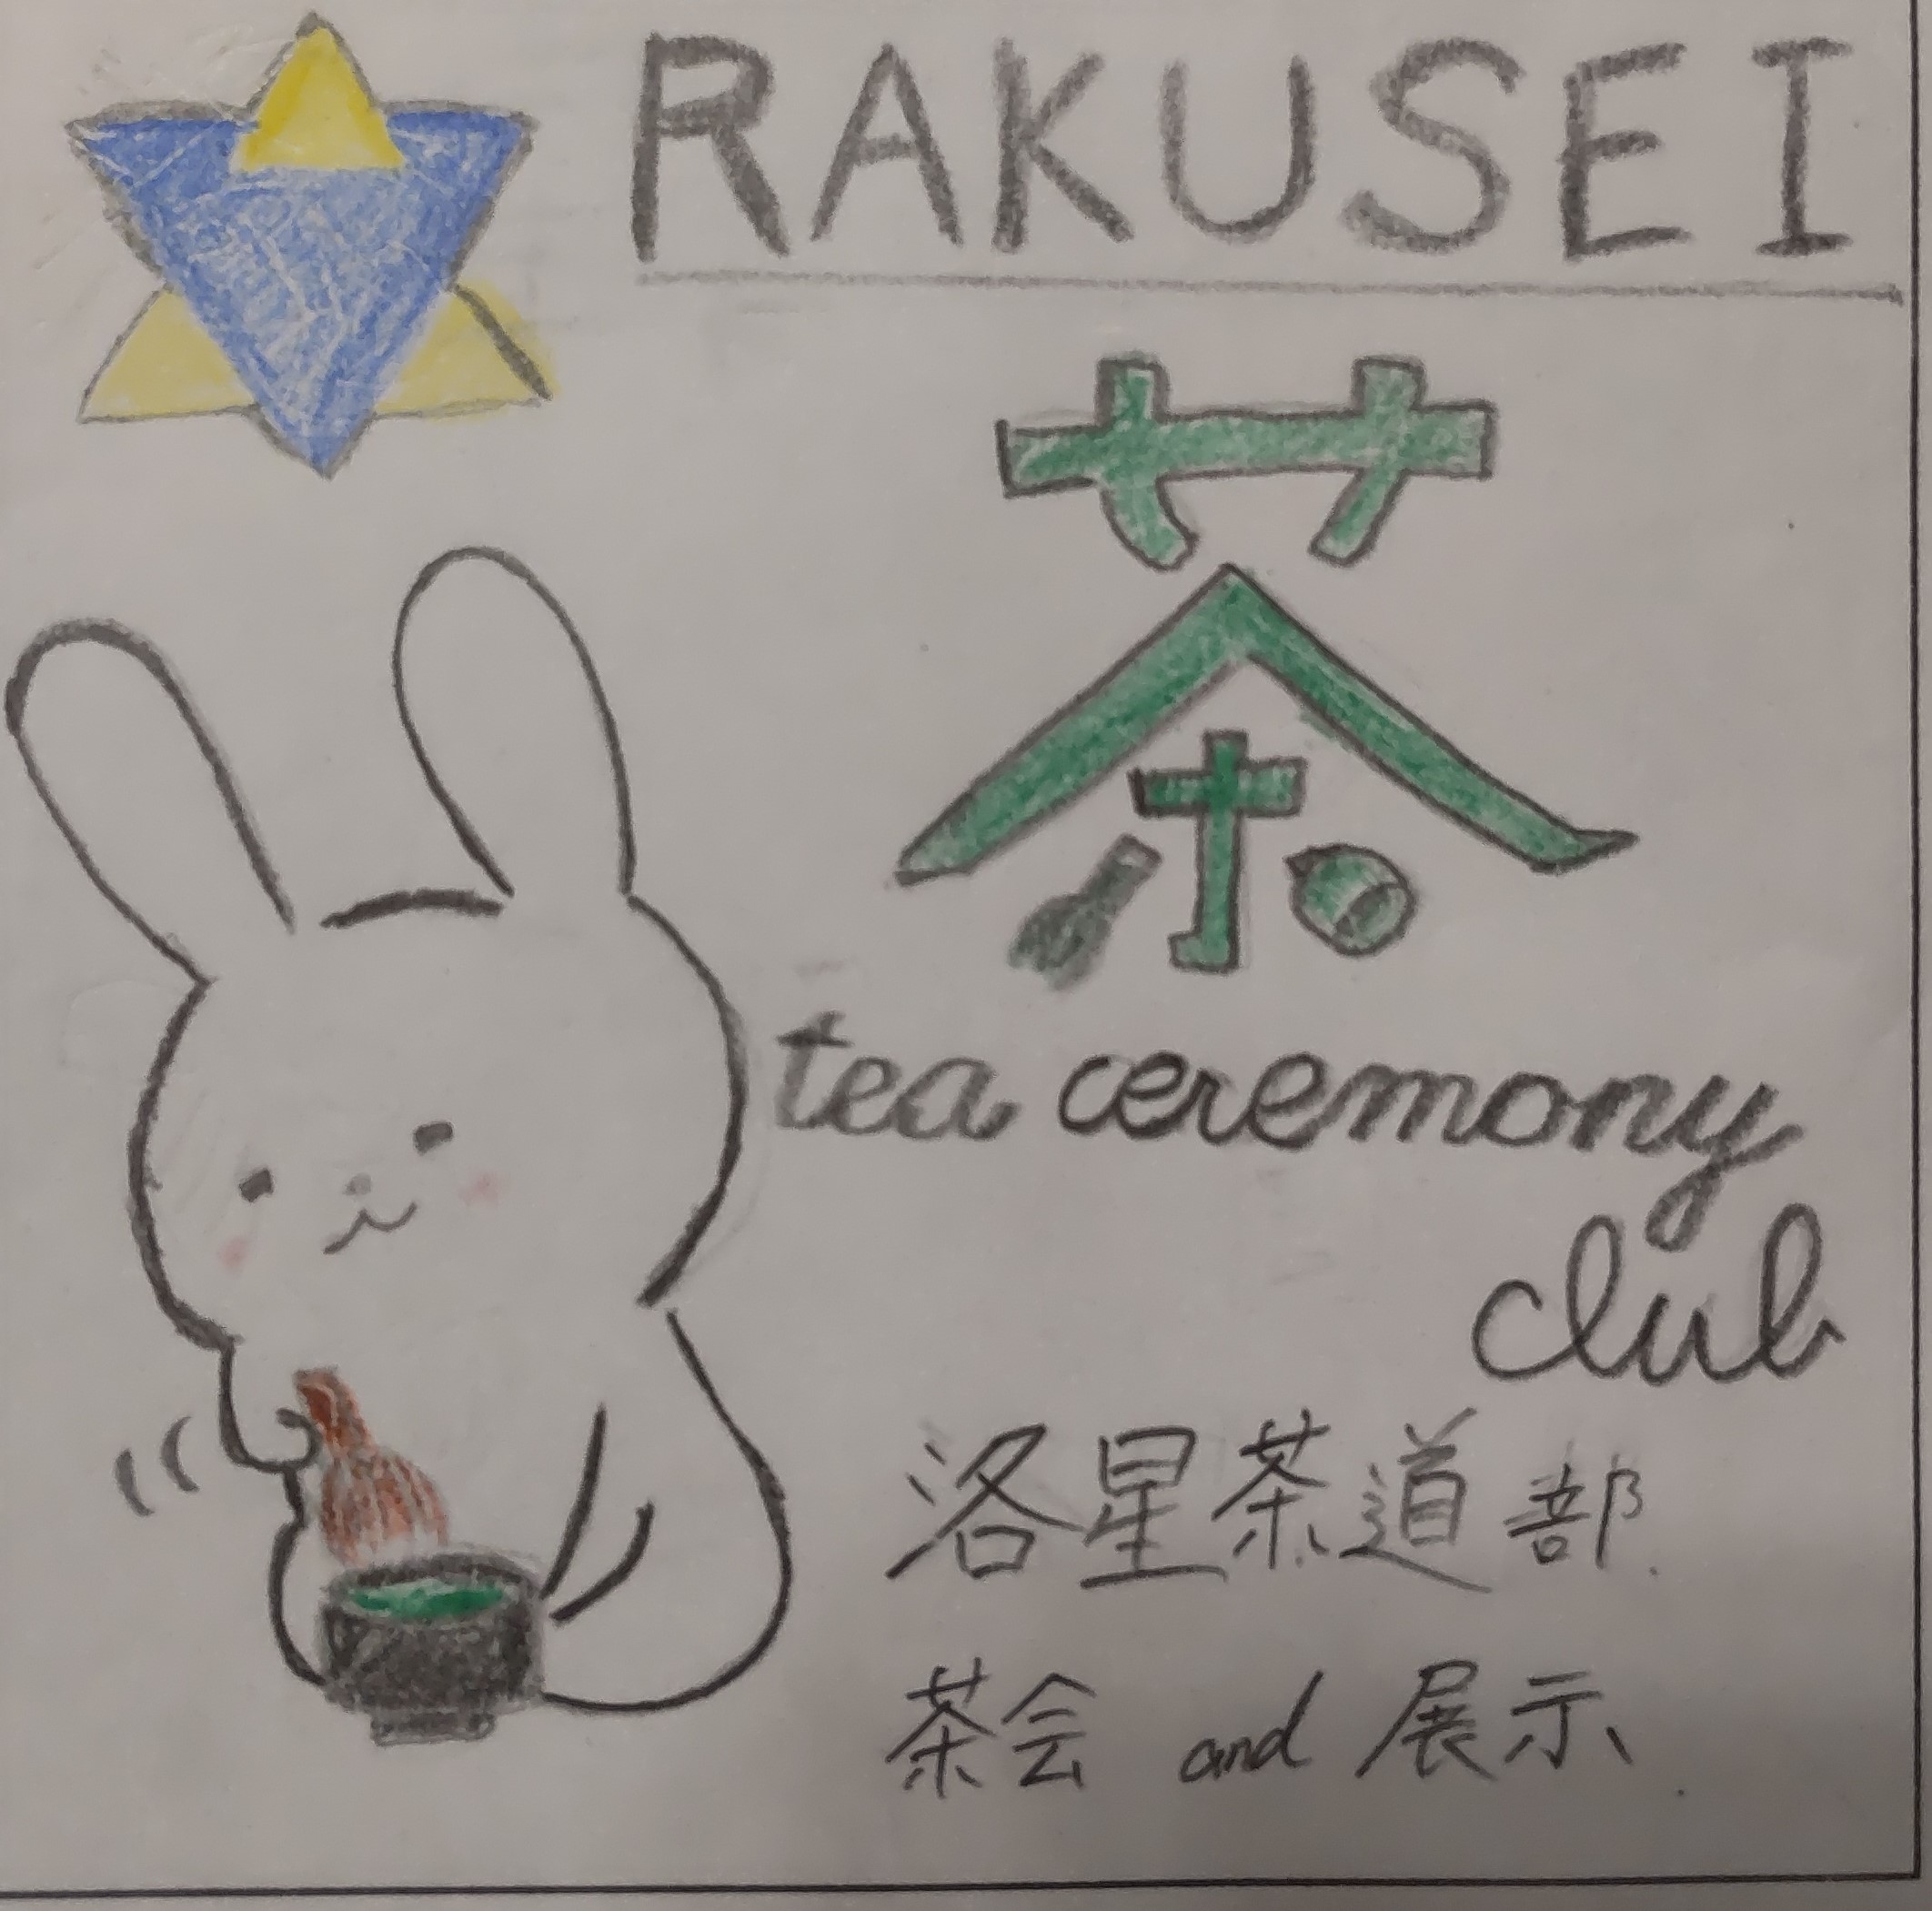 RAKUSEI
茶
tea ceremony
club
洛星茶道部
茶会 and 展示